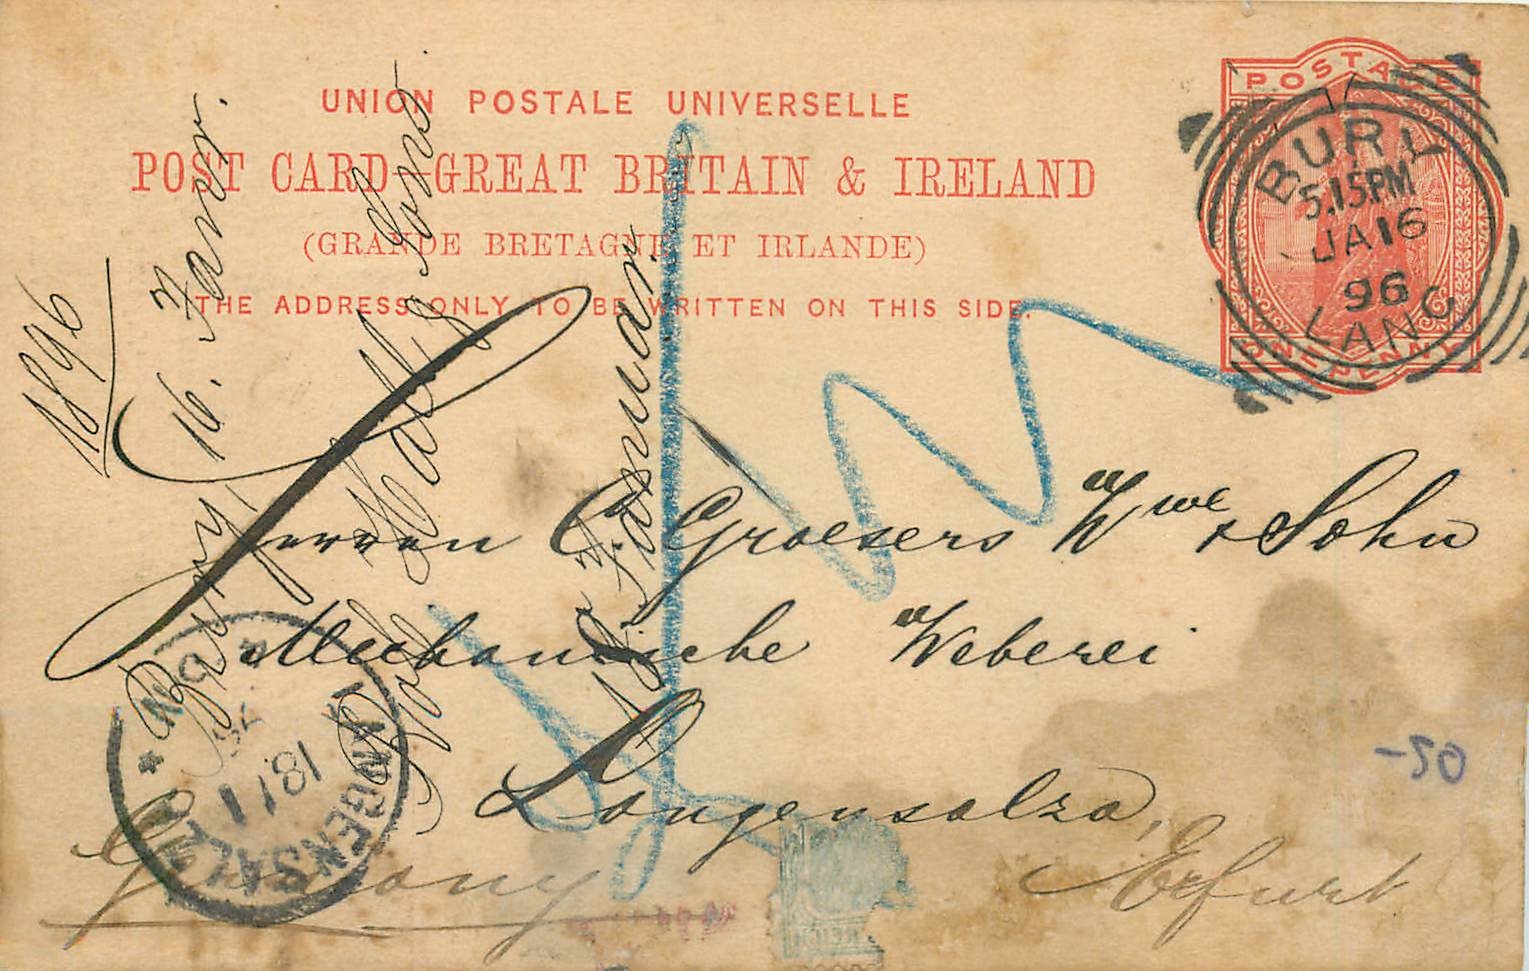 UNION POSTALE UNIVERSELLE
POST CARD-GREAT BRITAIN & IRELAND
(GRANDE BRETAGNE ET IRLANDE)
THE ADDRESS ONLY TO BE WRITTEN ON THIS SIDE.
POSTAGE
ONE PENNY
BURY
5.15PM
JA16
96
LANC
Herren C. Graesers Wwe & Sohn
Mechanische Weberei
Langensalza,
Erfurt
Germany
1896
Bury, 16. Januar.
Hall & Sons.
18. Januar.
LANGENSALZA
18/1
-50